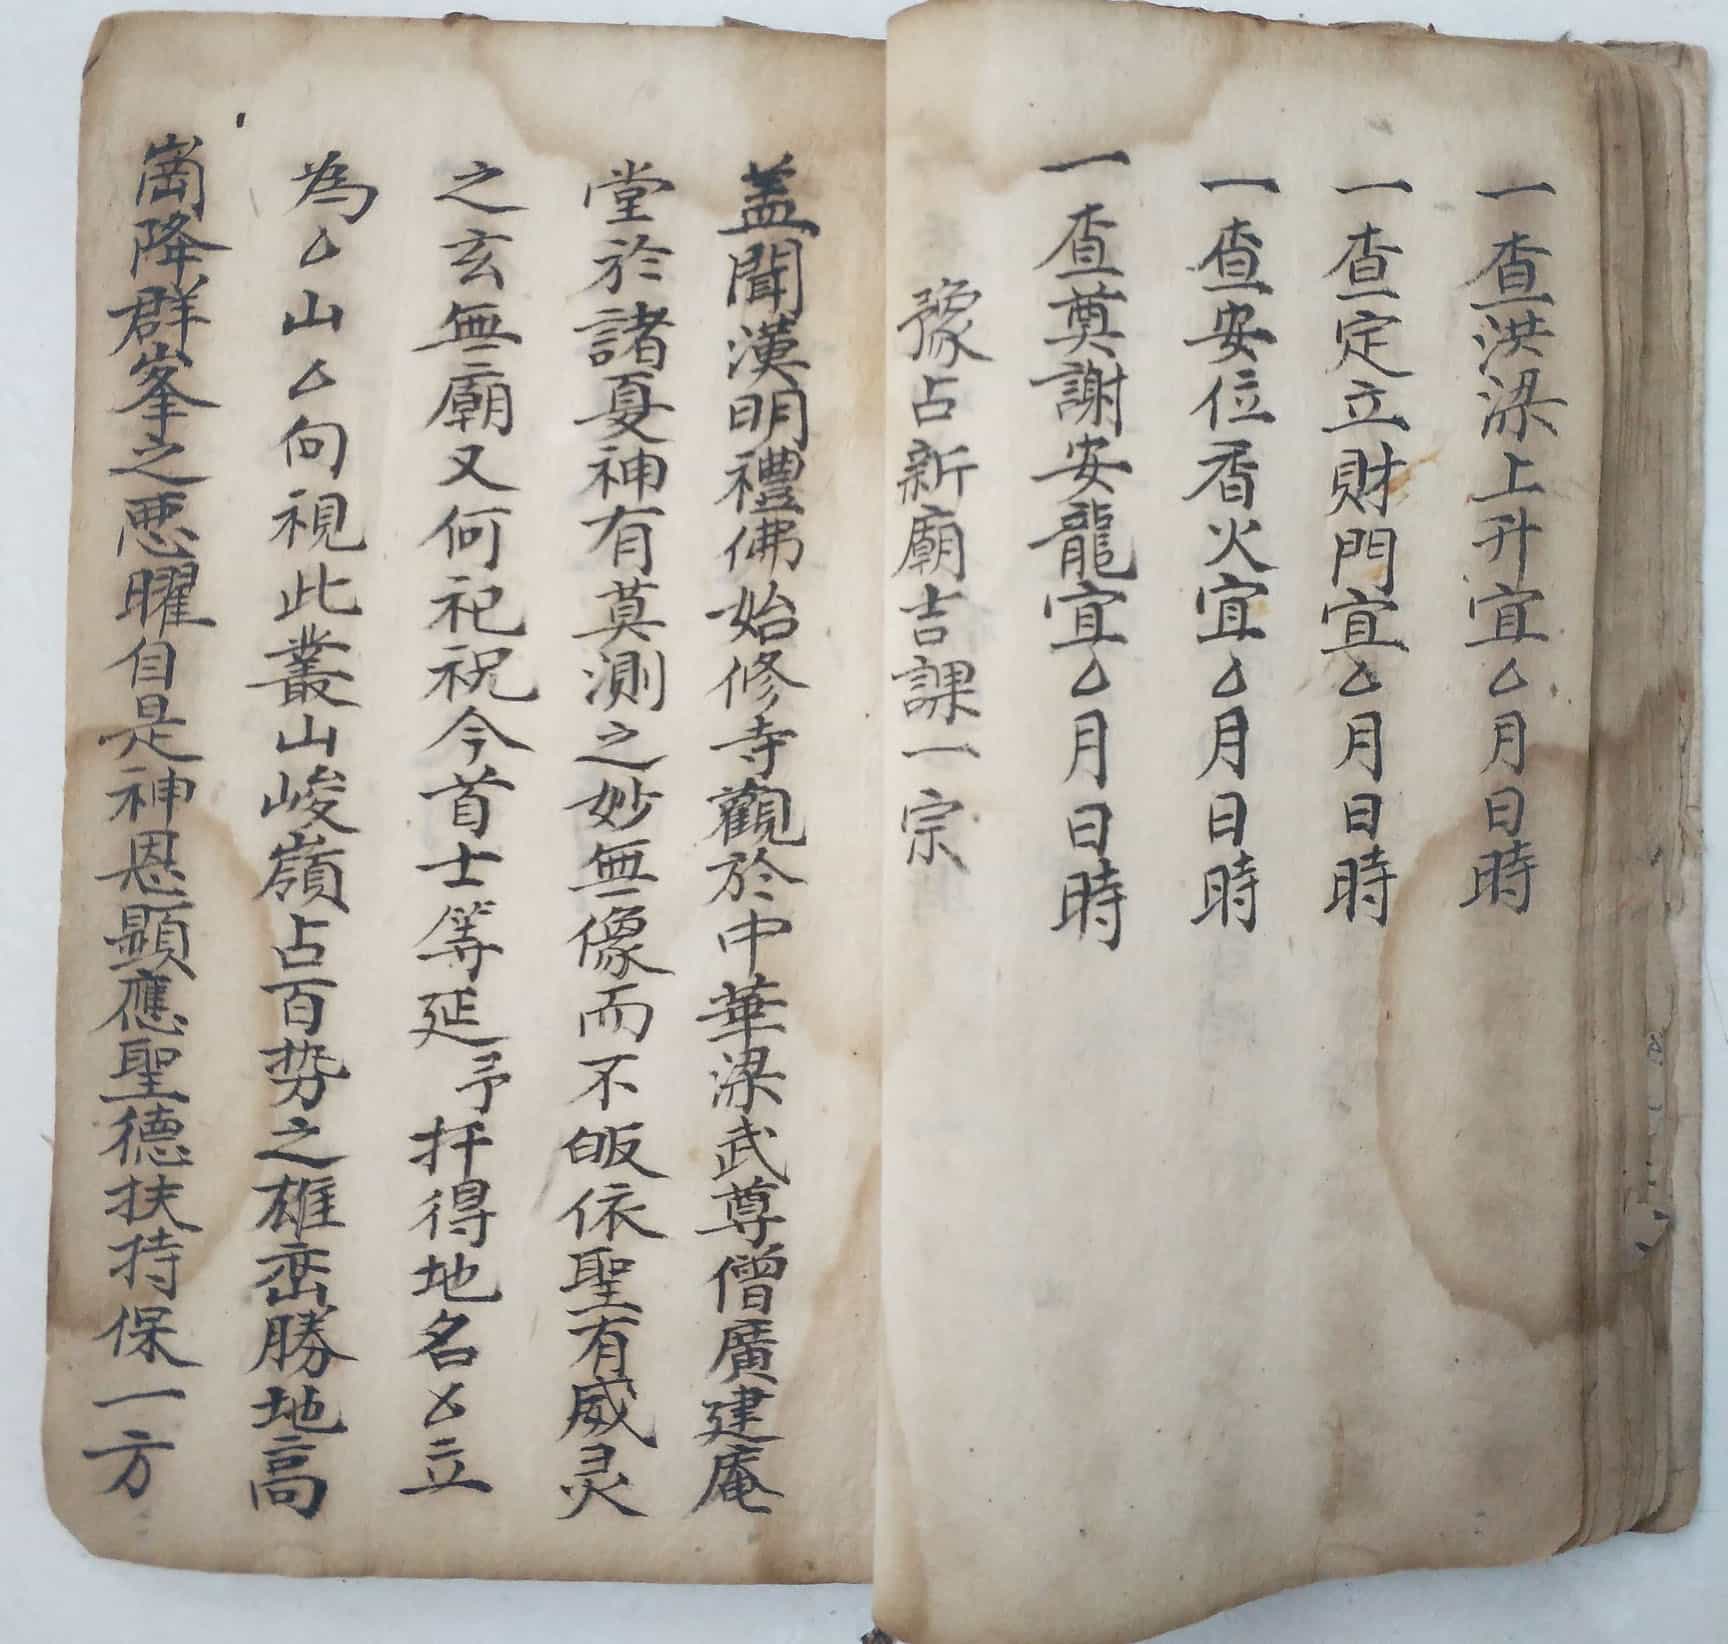 一查洪梁上升宜厶月日時
一查定立財門宜厶月日時
一查安位香火宜厶月日時
一查奠謝安龍宜厶月日時
豫占新廟吉課一宗
盖聞漢明禮佛始修寺觀於中華梁武尊僧廣建庵
堂於諸夏神有莫測之妙無像而不皈依聖有威灵
之玄無廟又何祀祝今首士等延予扦得地名厶立
為厶山厶向視此叢山峻嶺占百势之雄峦勝地高
崗降群峯之悪曜自是神恩顯應聖德扶持保一方